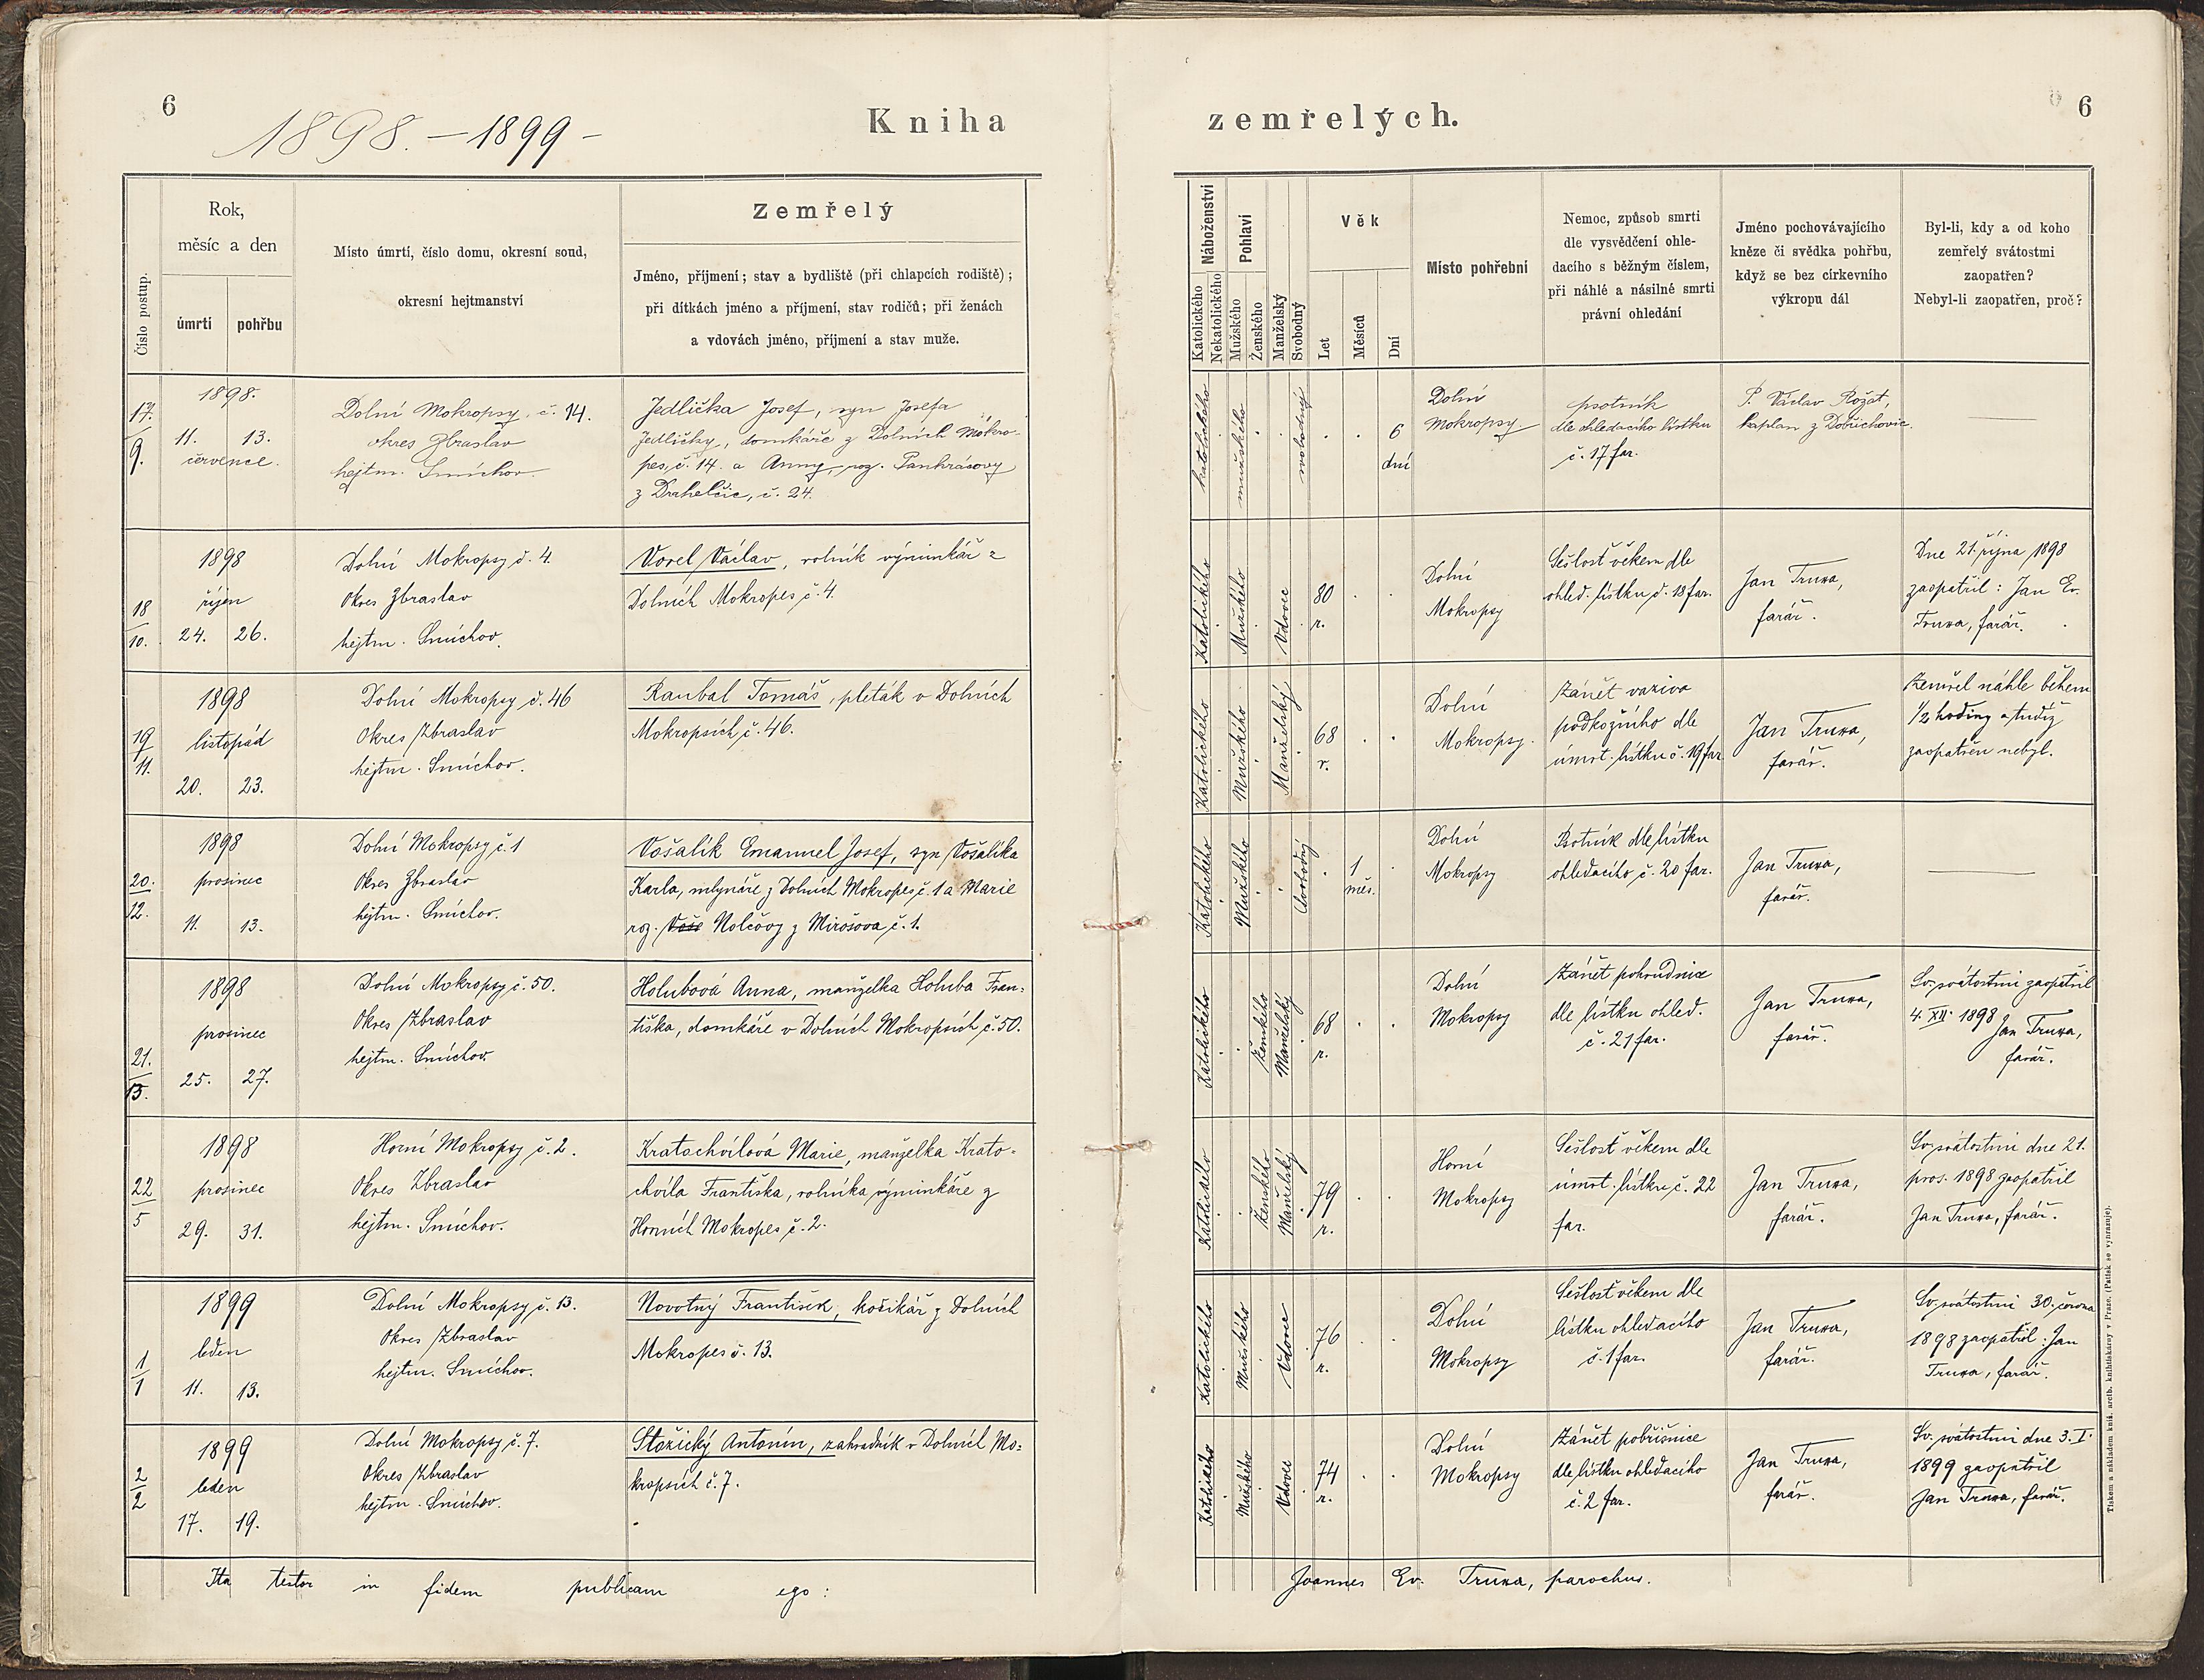 6
1898. – 1899 –
Kniha
zemřelých.
6
Číslo postup.
Rok,
měsíc a den
úmrtí
pohřbu
Místo úmrtí, číslo domu, okresní soud,
okresní hejtmanství
Zemřelý
Jméno, příjmení; stav a bydliště (při chlapcích rodiště);
při dítkách jméno a příjmení, stav rodičů; při ženách
a vdovách jméno, příjmení a stav muže.
Náboženství
Katolického
Nekatolického
Pohlaví
Mužského
Ženského
Manželský
Svobodný
Věk
Let
Měsíců
Dní
Místo pohřební
Nemoc, způsob smrti
dle vysvědčení ohle-
dacího s běžným číslem,
při náhlé a násilné smrti
právní ohledání
Jméno pochovávajícího
kněze či svědka pohřbu,
když se bez církevního
výkropu dál
Byl-li, kdy a od koho
zemřelý svátostmi
zaopatřen?
Nebyl-li zaopatřen, proč?
17.
9.
1898.
11. 13.
července.
Dolní Mokropsy, č. 14.
okres Zbraslav
hejtm. Smíchov
Jedlička Josef, syn Josefa
Jedličky, domkáře z Dolních Mokro-
pes, č. 14. a Anny, roz. Pankrásovy
z Drahelčic, č. 24.
katolického
mužského
svobodný
6
dní
Dolní
Mokropsy.
psotník
dle ohledacího lístku
č. 17 far.
P. Václav Rožat,
kaplan z Dobřichovic.
18
10.
1898
říjen
24. 26.
Dolní Mokropsy č. 4.
Okres Zbraslav
hejtm. Smíchov.
Vorel Václav, rolník výminkář z
Dolních Mokropes č. 4.
Katolického
Mužského
Vdovec
80
r.
Dolní
Mokropsy
Sešlost věkem dle
ohled. lístku č. 18 far.
Jan Truxa,
farář.
Dne 21. října 1898
zaopatřil: Jan Ev.
Truxa, farář.
19
11.
1898
listopád
20. 23.
Dolní Mokropsy č. 46
Okres Zbraslav
hejtm. Smíchov.
Raubal Tomáš, pleták v Dolních
Mokropsích č. 46.
Katolického
Mužského
Manželský
68
r.
Dolní
Mokropsy.
Zánět vaziva
podkožního dle
úmrt. lístku č. 19 far
Jan Truxa,
farář.
Zemřel náhle během
1/2 hodiny a tudíž
zaopatřen nebyl.
20.
12.
1898
prosinec
11. 13.
Dolní Mokropsy č. 1
Okres Zbraslav
hejtm. Smíchov.
Vošalík Emanuel Josef, syn Vošalíka
Karla, mlynáře z Dolních Mokropes č. 1 a Marie
roz. Voše Nolčovy z Mirošova č. 1.
Katolického
Mužského
Svobodný
1
měs.
Dolní
Mokropsy
Psotník dle lístku
ohledacího č. 20 far.
Jan Truxa,
farář.
21.
13.
1898
prosinec
25. 27.
Dolní Mokropsy č. 50.
Okres Zbraslav
hejtm. Smíchov.
Holubová Anna, manželka Holuba Fran-
tiška, domkáře v Dolních Mokropsích č. 50.
Katolického
Ženského
Manželský
68
r.
Dolní
Mokropsy
Zánět pohrudnice
dle lístku ohled.
č. 21 far.
Jan Truxa,
farář.
Sv. svátostmi zaopatřil
4. XII. 1898
Jan Truxa,
farář.
22
5
1898
prosinec
29. 31.
Horní Mokropsy č. 2.
Okres Zbraslav
hejtm. Smíchov.
Kratochvílová Marie, manželka Krato-
chvíla Františka, rolníka výminkáře z
Horních Mokropes č. 2.
Katolického
Ženského
Manželský
79
r.
Horní
Mokropsy
Sešlost věkem dle
úmrt. lístku č. 22
far.
Jan Truxa,
farář.
Sv. svátostmi dne 21.
pros. 1898 zaopatřil
Jan Truxa, farář.
1
1
1899
leden
11. 13.
Dolní Mokropsy č. 13.
Okres Zbraslav
hejtm. Smíchov.
Novotný František, košíkář z Dolních
Mokropes č. 13.
Katolického
Mužského
Vdovec
76
r.
Dolní
Mokropsy
Sešlost věkem dle
lístku ohledacího
č. 1 far.
Jan Truxa,
farář.
Sv. svátostmi 30. června
1898 zaopatřil: Jan
Truxa, farář.
2
2
1899
leden
17. 19.
Dolní Mokropsy č. 7.
Okres Zbraslav
hejtm. Smíchov.
Stožický Antonín, zahradník v Dolních Mo-
kropsích č. 7.
Katolického
Mužského
Vdovec
74
r.
Dolní
Mokropsy
Zánět pobřišnice
dle lístku ohledacího
č. 2 far.
Jan Truxa,
farář.
Sv. svátostmi dne 3. I.
1899 zaopatřil
Jan Truxa, farář.
Ita testor in fidem publicam ego:
Joannes Ev. Truxa, parochus.
Tiskem a nákladem kníž. arcib. knihtiskárny v Praze. (Patisk se vyhrazuje).